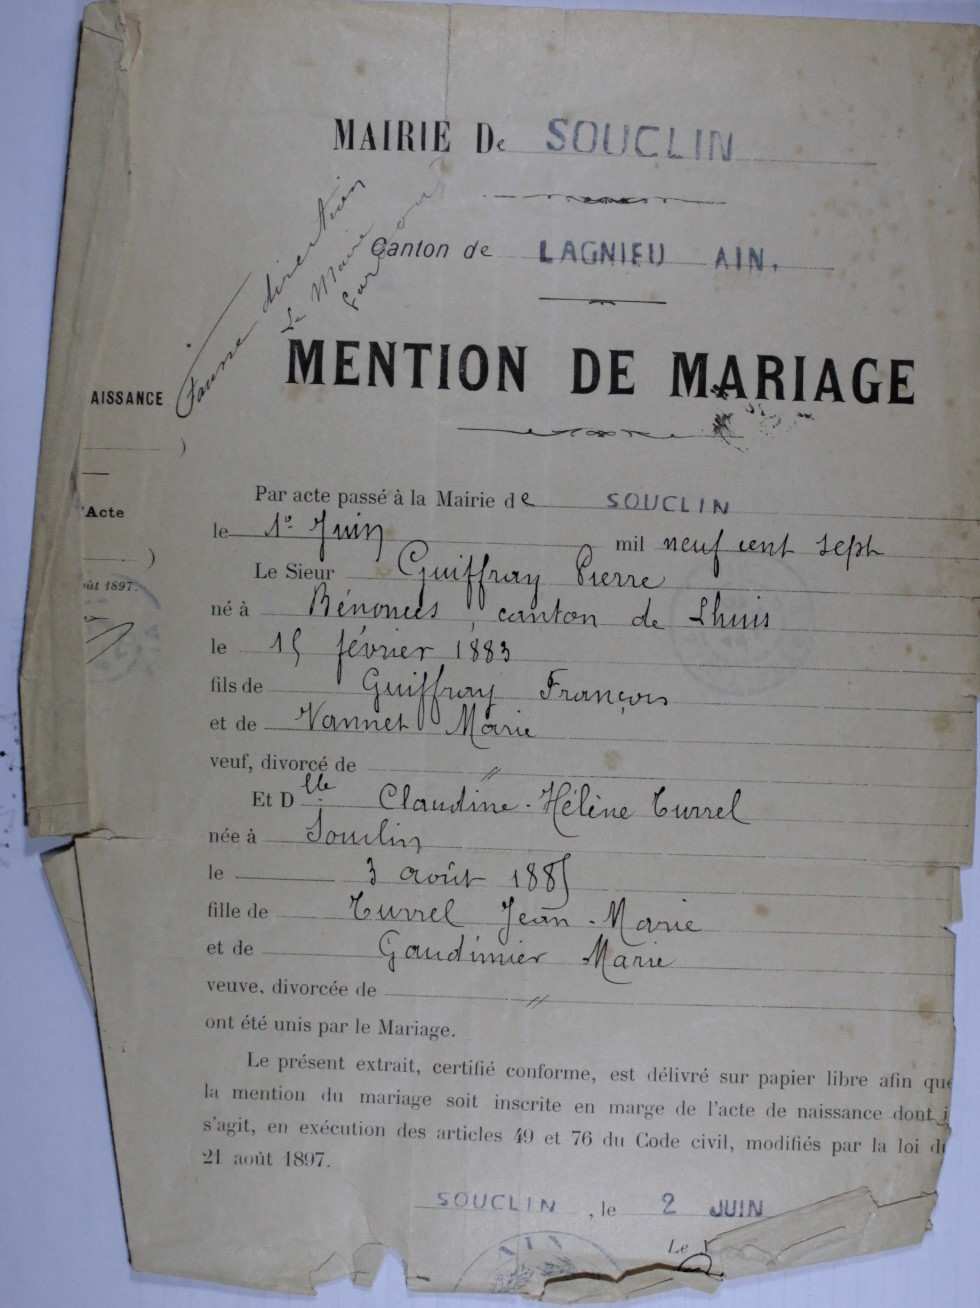 MAIRIE De SOUCLIN
Canton de LAGNIEU AIN.
Fausse direction
Le Maire
MENTION DE MARIAGE
AISSANCE
)
'Acte
)
oût 1897.
Par acte passé à la Mairie de SOUCLIN
le 1er Juin mil neuf cent sept
Le Sieur Guiffray Pierre
né à Bénonces, canton de Lhuis
le 15 février 1883
fils de Guiffray François
et de Vannet Marie
veuf, divorcé de "
Et Dlle Claudine-Hélène Turrel
née à Souclin
le 3 août 1885
fille de Turrel Jean-Marie
et de Gaudimier Marie
veuve, divorcée de "
ont été unis par le Mariage.
Le présent extrait, certifié conforme, est délivré sur papier libre afin que
la mention du mariage soit inscrite en marge de l'acte de naissance dont i
s'agit, en exécution des articles 49 et 76 du Code civil, modifiés par la loi d
21 août 1897.
SOUCLIN, le 2 JUIN
Le